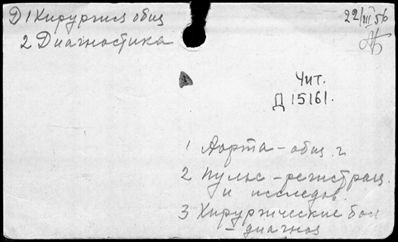 Д 1 Хирургия общ
2 Диагностика
22/III 56
Чит.
Д 15161.
1 Аорта – общ. г.
2 Пульс – регистрац.
и исследов.
3 Хирургические бол
– диагноз